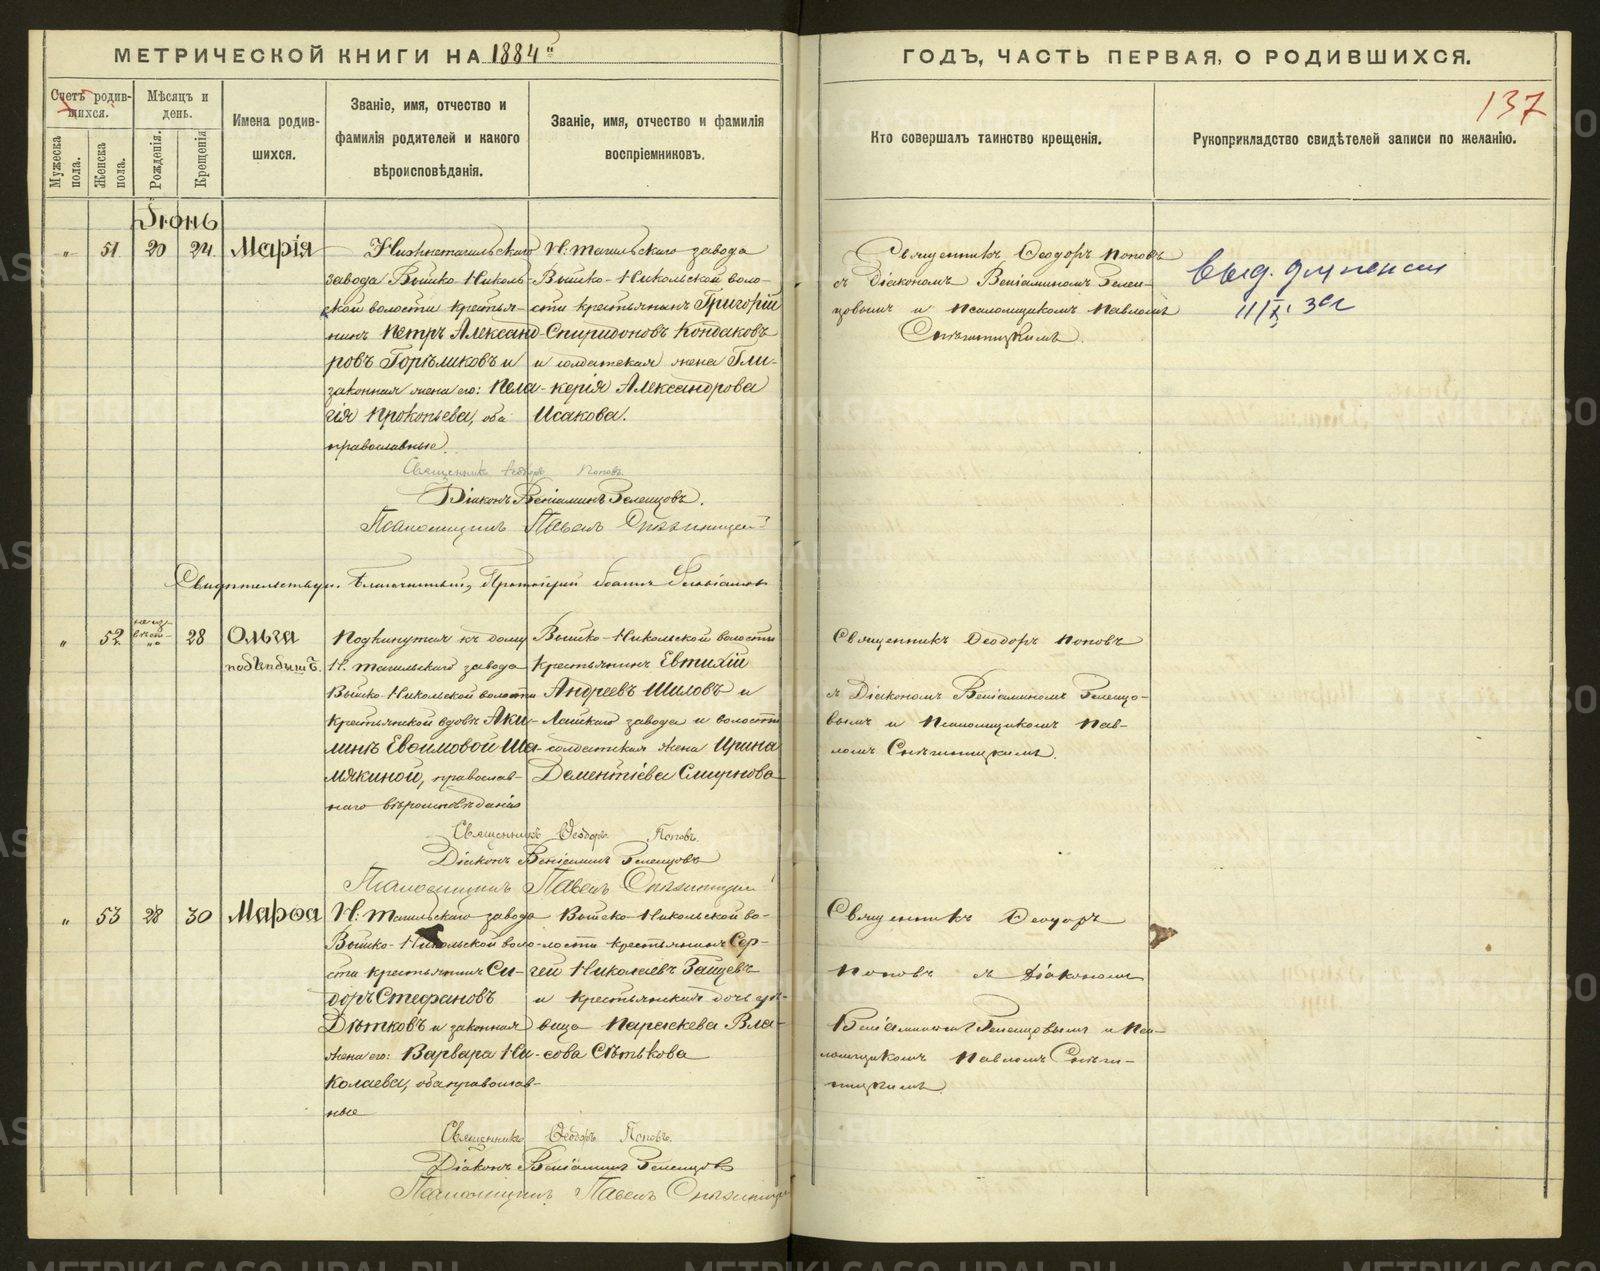 МЕТРИЧЕСКОЙ КНИГИ НА 1884й
ГОДЪ, ЧАСТЬ ПЕРВАЯ, О РОДИВШИХСЯ.
137
Счетъ родив-
шихся.
Мужеска пола.
Женска пола.
Мѣсяцъ и
день.
Рожденія.
Крещенія
Имена родив-
шихся.
Званіе, имя, отчество и
фамилія родителей и какого
вѣроисповѣданія.
Званіе, имя, отчество и фамилія
воспріемниковъ.
Кто совершалъ таинство крещенія.
Рукоприкладство свидѣтелей записи по желанію.
Іюнь
„ 51. 20 24. Марія
Нижнетагильскаго
завода Выйско-Николь-
ской волости крестья-
нинъ Петръ Александ-
ровъ Горѣликовъ и
законная жена его: Пела-
гія Прокопьева, оба
православные.
Н: Тагильскаго завода
Выйско-Никольской воло-
сти крестьянинъ Григорій
Спиридоновъ Кондаковъ
и солдатская жена Гли-
керія Александрова
Исакова.
Священникъ Ѳеодоръ Поповъ
съ Діакономъ Веніаминомъ
и Псаломщикомъ Павломъ
11/X
Священникъ Ѳеодоръ Поповъ.
Діаконъ Веніаминъ
Псаломщикъ Павелъ
Благочинный, Протоіерей Іоаннъ
„ 52 28 Ольга
Подкинутая къ дому
Н. Тагильскаго завода
Выйско-Никольской волости
крестьянской вдовѣ Аки-
линѣ Евѳимовой Ша-
мякиной, православ-
наго вѣроисповѣданія
Выйско-Никольской волости
крестьянинъ Евтихій
Андреевъ Шиловъ и
Лайскаго завода и волости
солдатская жена Ирина
Дементіева Смирнова
Священникъ Ѳеодоръ Поповъ
съ Діакономъ Веніаминомъ
и Псаломщикомъ Пав-
ломъ
Священникъ Ѳеодоръ Поповъ.
Діаконъ Веніаминъ
Псаломщикъ Павелъ
„ 53 28 30 Марѳа
Н: Тагильскаго завода
Выйско-Никольской воло-
сти крестьянинъ Си-
доръ Стефановъ
Дѣтковъ и законная
жена его: Варвара Ни-
колаева, оба православ-
ные
Выйско-Никольской во-
лости крестьянинъ Сер-
гей Николаевъ Зайцевъ
и крестьянская дочь дѣ-
вица Параскева Вла-
сова Сѣткова
Священникъ Ѳеодоръ
Поповъ съ Діакономъ
и Пса-
ломщикомъ Павломъ
Священникъ Ѳеодоръ Поповъ.
Діаконъ Веніаминъ
Псаломщикъ Павелъ